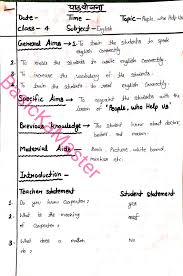 पाठयोजना
Date- Time - Topic- People, who Help Us
class - 4 Subject - English
General Aims - 1- To train the students to speak
english correctly.
2- To make the students to write english correctly.
3- To increase the vocabulary of the students.
4- To train the students to read english correctly.
Specific Aims - To acquaint the students with the
lesson of "People, who Help Us"
Previous Knowledge - The student know about doctor,
Material Aids - Basic Picture, white board,
markers etc.
Introduction -
Teacher statement Student statement
1- Do you know Carpenter? yes
2- What is the meaning
of Carpenter?
3- What does a
do?
BasicKaMaster